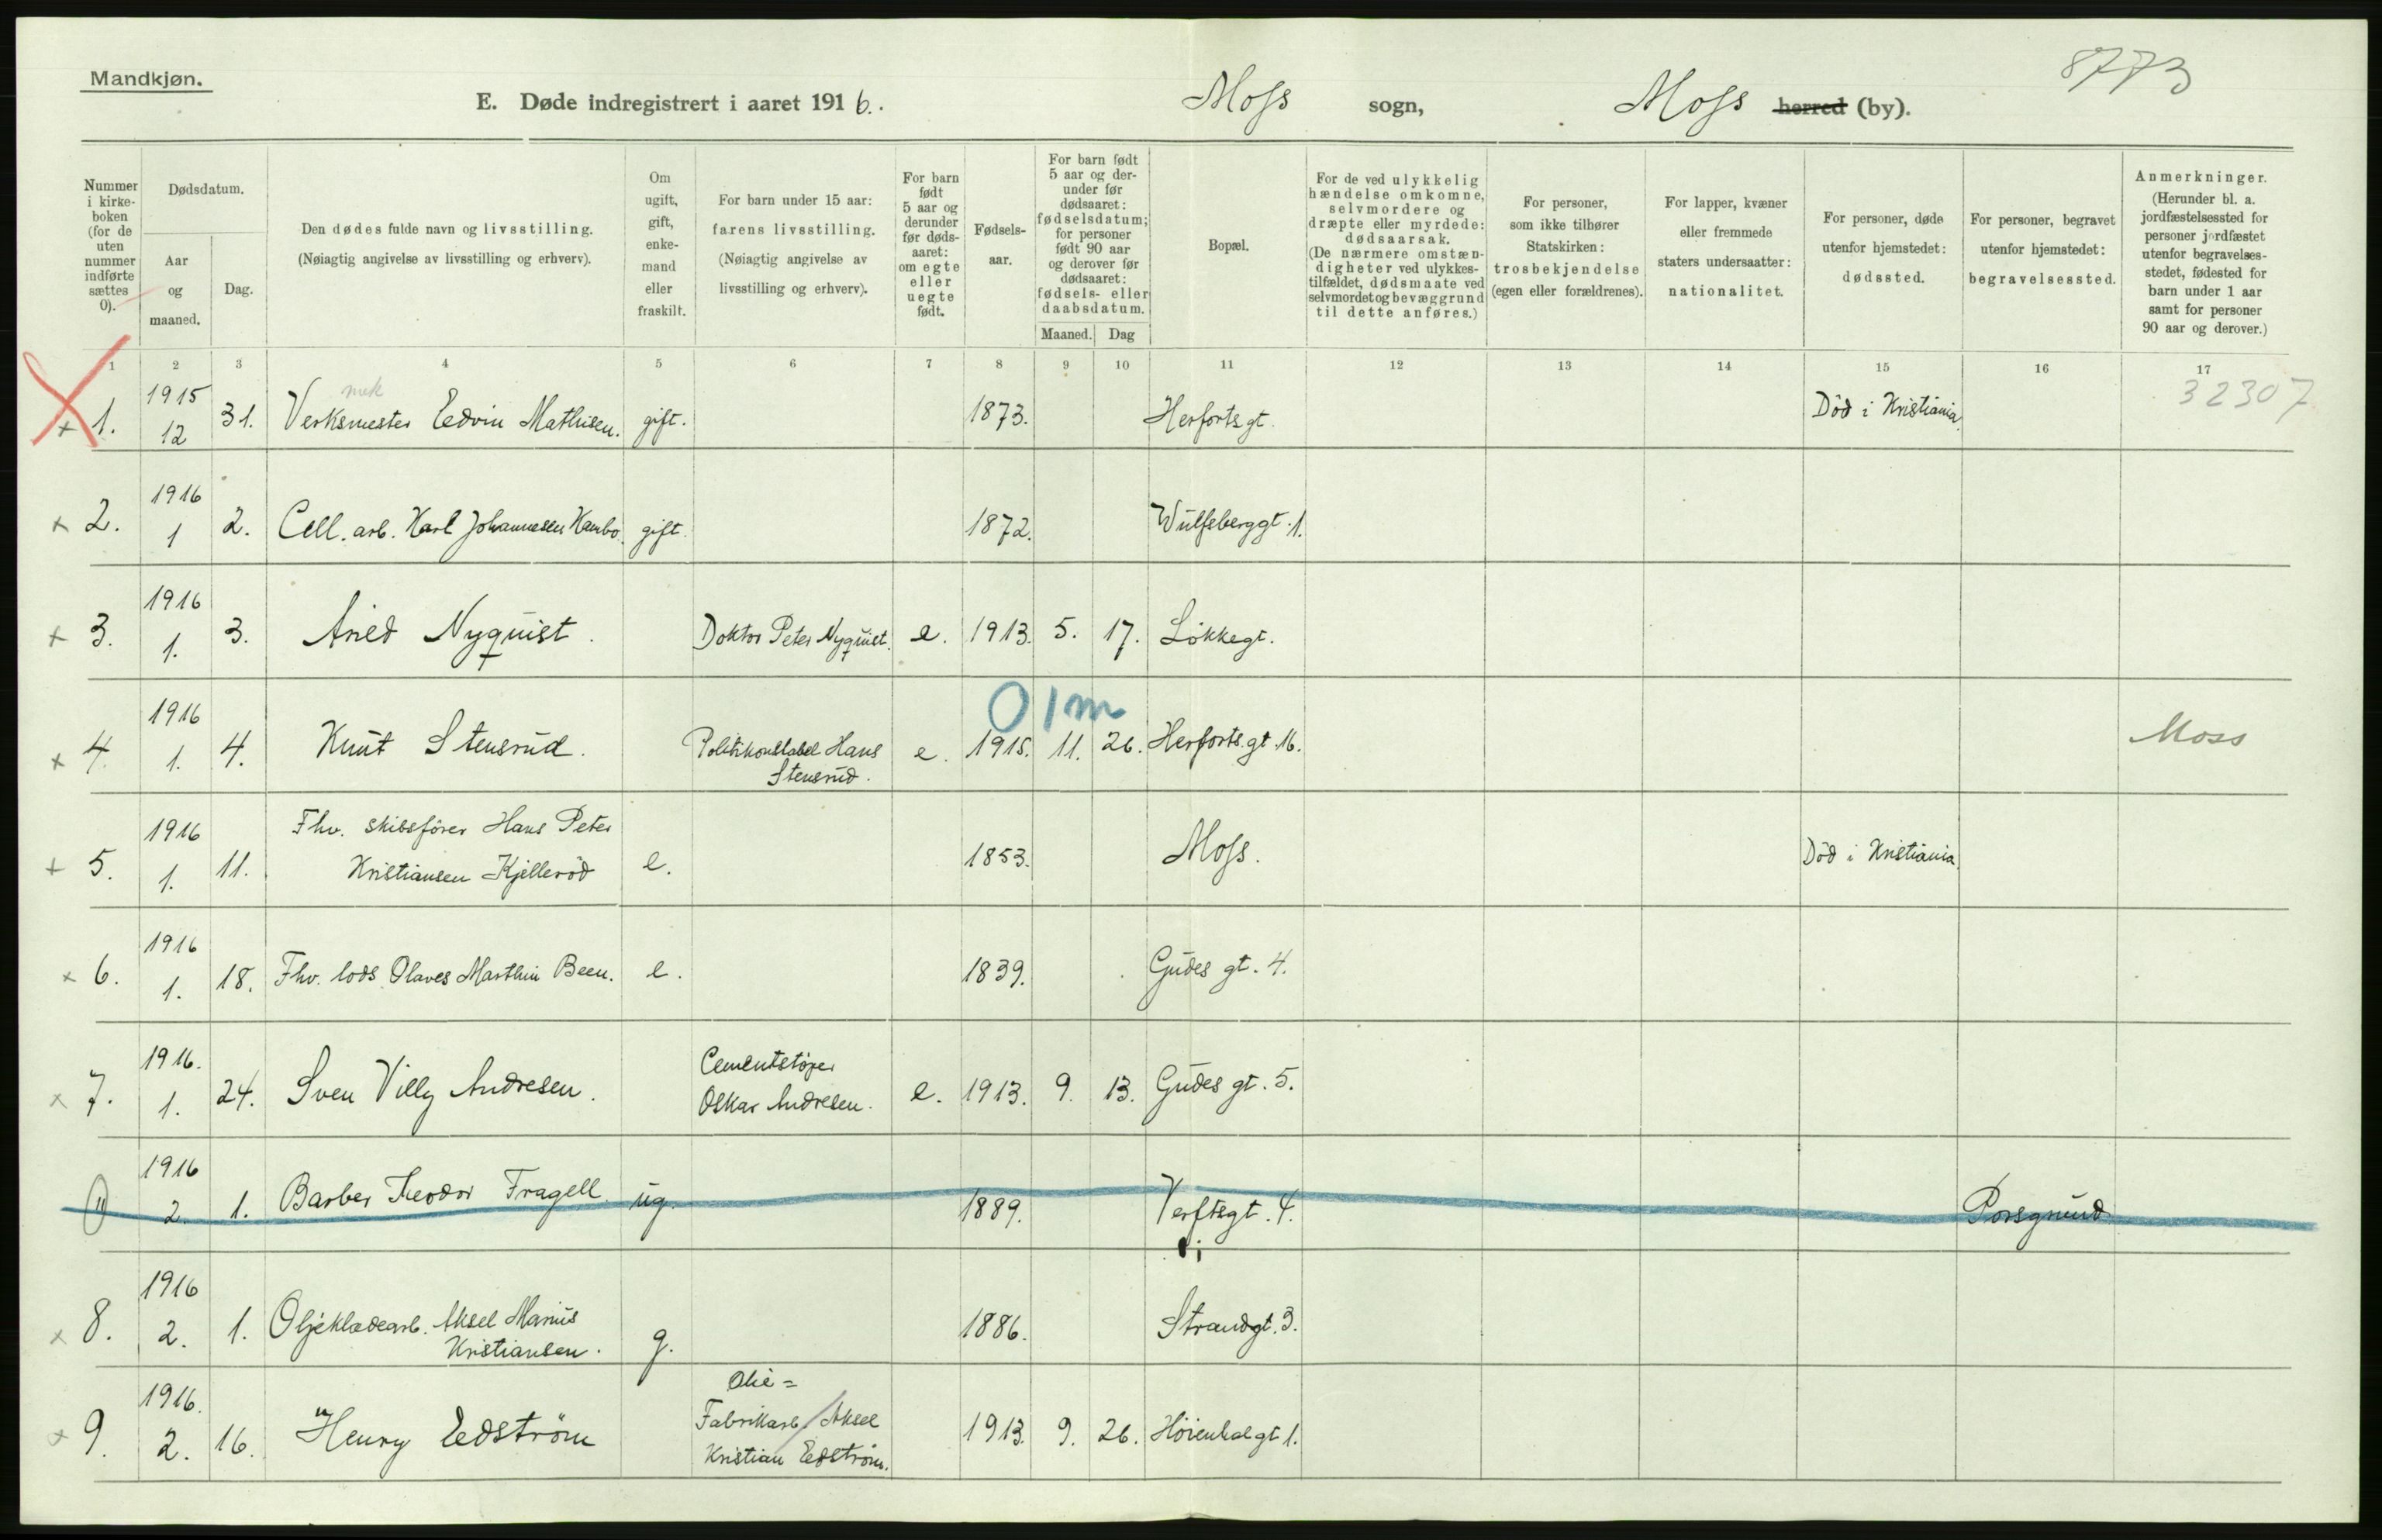 Mandkjøn.
8773
E. Døde indregistrert i aaret 1916.
Moss sogn,
Moss herred (by).
Nummer i kirke-boken (for de uten nummer indførte sættes 0).
Dødsdatum.
Aar og maaned.
Dag.
Den dødes fulde navn og livsstilling.
(Nøiagtig angivelse av livsstilling og erhverv).
Om ugift, gift, enke-mand eller fraskilt.
For barn under 15 aar: farens livsstilling.
(Nøiagtig angivelse av livsstilling og erhverv).
For barn født 5 aar og derunder før døds-aaret: om egte eller uegte født.
Fødsels-aar.
For barn født 5 aar og der-under før dødsaaret: fødselsdatum; for personer født 90 aar og derover før dødsaaret: fødsels- eller daabsdatum.
Maaned. Dag
Bopæl.
For de ved ulykkelig hændelse omkomne, selvmordere og dræpte eller myrdede: dødsaarsak.
(De nærmere omstæn-digheter ved ulykkes-tilfældet, dødsmaate ved selvmordet og bevæggrund til dette anføres.)
For personer, som ikke tilhører Statskirken: trosbekjendelse (egen eller forældrenes).
For lapper, kvæner eller fremmede staters undersaatter: nationalitet.
For personer, døde utenfor hjemstedet: dødssted.
For personer, begravet utenfor hjemstedet: begravelsessted.
Anmerkninger.
(Herunder bl. a. jordfæstelsessted for personer jordfæstet utenfor begravelses-stedet, fødested for barn under 1 aar samt for personer 90 aar og derover.)
1 2 3 4 5 6 7 8 9 10 11 12 13 14 15 16 17
mek
32307
x 1. 1915 12 31. Verksmester Edvin Mathisen. gift. 1873. Herforts gt. Död i Kristiania.
x 2. 1916 1 2. Cell. arb. Karl Johannesen Kambo. gift. 1872. Wülfsberggt. 1.
x 3. 1916 1. 3. Aried Nyquist. Doktor Peter Nyquist. e. 1913. 5. 17. Lökkegt.
0 1 m
x 4. 1916 1. 4. Knut Stensrud. Politikonstabel Hans Stensrud. e. 1915. 11. 26. Herforts gt. 16. Moss
x 5. 1916 1. 11. Fhv. skibsförer Hans Peter Kristiansen Kjelleröd e. 1853. Moss. Död i Kristiania.
x 6. 1916 1. 18. Fhv. lods Olaves Marthin Been. e. 1839. Gudes gt. 4.
x 7. 1916. 1. 24. Sven Villy Andresen. Cementstöper Oskar Andresen. e. 1913. 9. 13. Gudes gt. 5.
1916 2. 1. Barber Teodor Fragell. ug. 1889. Verftsgt. 4. Porsgrund
x 8. 1916 2. 1. Oljeklædearb. Aksel Marius Kristiansen. g. 1886. Strandgt. 3.
x 9. 1916. 2. 16. Henry Edström Olie= Fabrikarb. Aksel Kristian Edström. 1913. 9. 26. Höienhalgt 1.